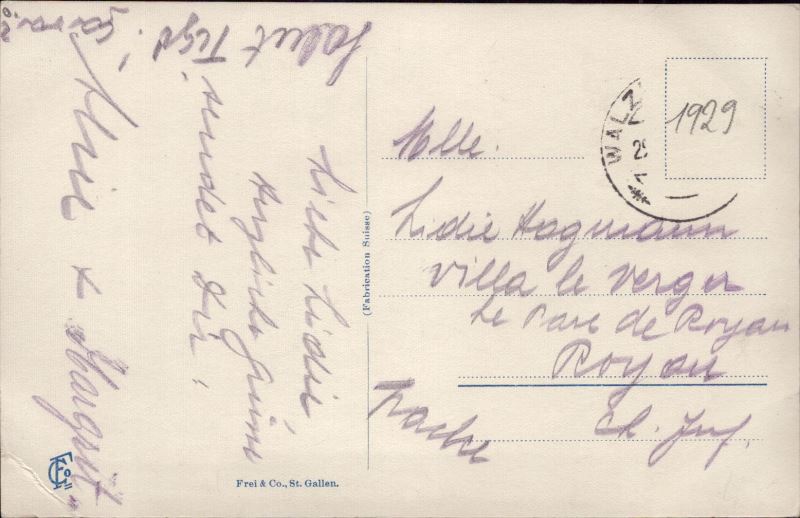 Liebe Lidie
Herzliche Grüsse
sendet Dir,
& Margrit.
Salut
(Fabrication Suisse)
Frei & Co., St. Gallen.
WALZ
1929
Mlle.
Lidie Hagmann
Villa le Verger
Le Parc de Royan
Royan
ch. Inf.